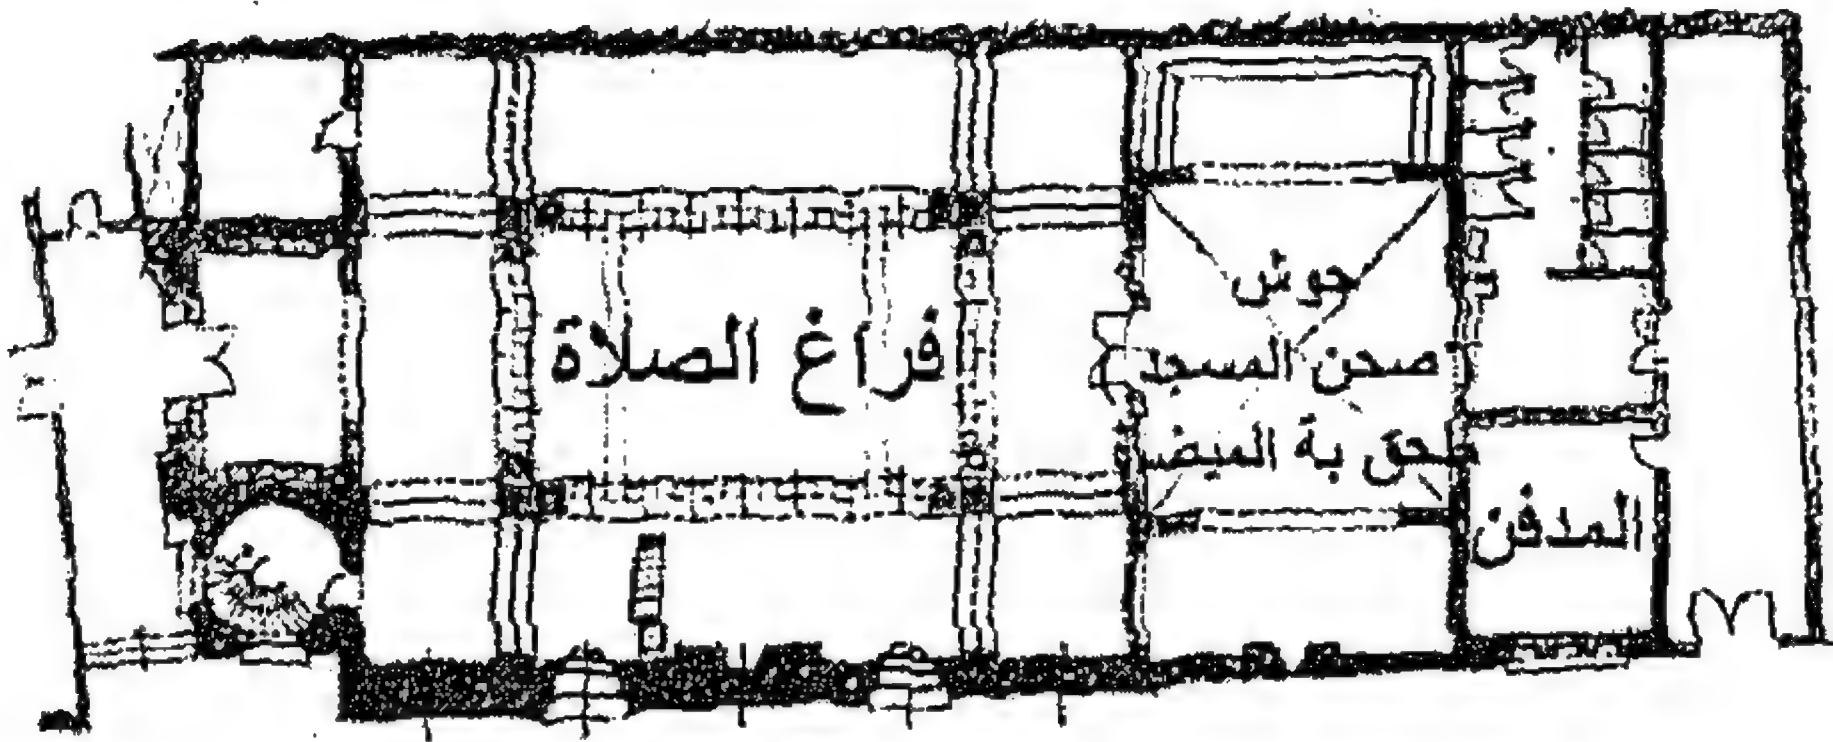 حوش
فراغ الصلاة
صحن المسجد
ملحق بة الميضـ
المدفن